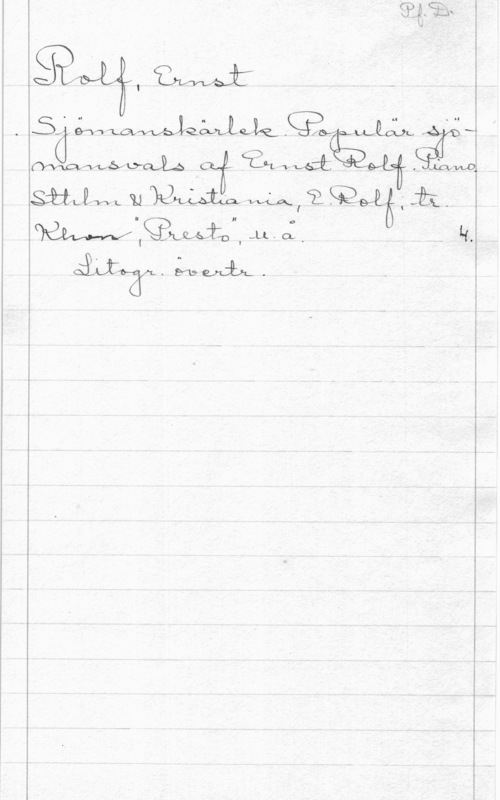 Pf. D.
Rolf, Ernst
Sjömanskärlek. Populär sjö-
mansvals af Ernst Rolf. Piano.
Sthlm & Kristiania, E. Rolf, tr.
Khvn "Presto", u. å. 4.
Litogr. övertr.